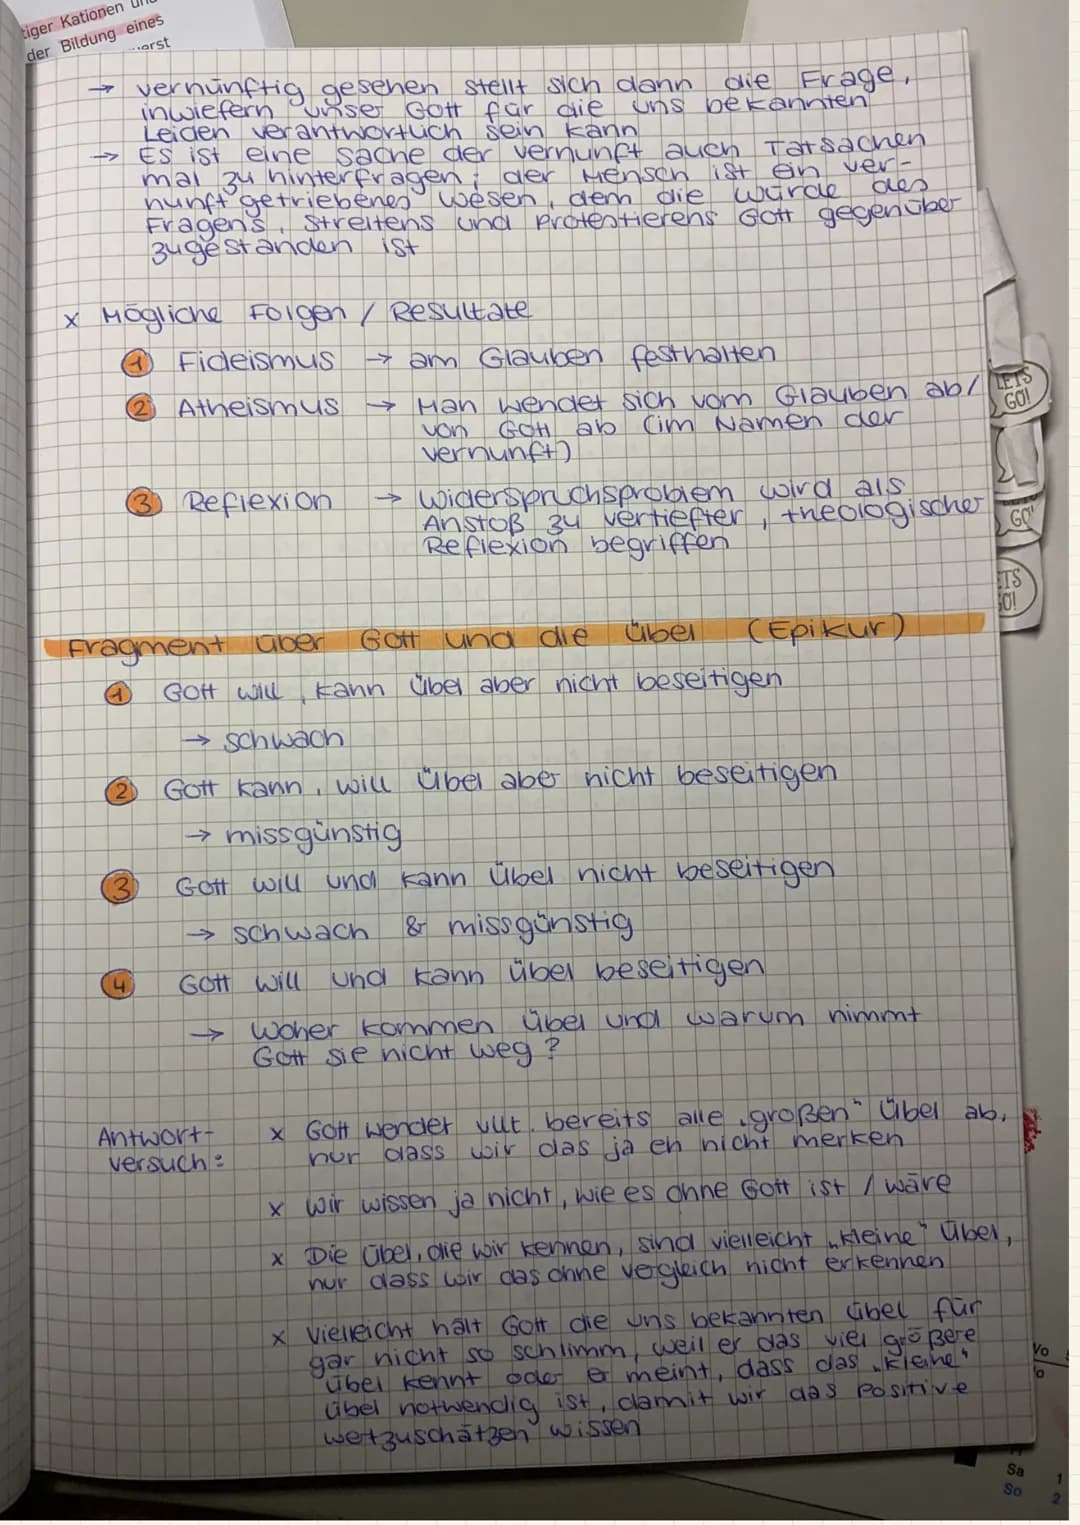 tiger Kationen und
der Bildung eines
erst
→ vernünftig gesehen stellt sich dann die Frage,
inwiefern unser Gott für die uns bekannten
Leiden verantwortlich sein kann
→ Es ist eine Sache der Vernunft auch Tatsachen
mal zu hinterfragen; der Mensch ist ein ver-
nunft getriebenes Wesen, dem die Würde des
Fragens, Streitens und Protestierens Gott gegenüber
zugestanden ist
x Mögliche Folgen / Resultate
1 Fideismus → am Glauben festhalten
2 Atheismus → Man wendet sich vom Glauben ab/
von Gott ab (im Namen der
Vernunft)
3 Reflexion → Widerspruchsproblem wird als
Anstoß zu vertiefter, theologischer
Reflexion begriffen
LETS
GO!
GO!
LETS
GO!
Fragment über Gott und die Übel (Epikur)
1 Gott will, kann Übel aber nicht beseitigen
→ schwach
2 Gott kann, will Übel aber nicht beseitigen
→ missgünstig
3 Gott will und kann Übel nicht beseitigen
→ schwach & missgünstig
4 Gott will und kann Übel beseitigen
→ Woher kommen Übel und warum nimmt
Gott sie nicht weg?
Antwort- x Gott wendet vllt. bereits alle „großen" Übel ab,
versuch: nur dass wir das ja eh nicht merken
x Wir wissen ja nicht, wie es ohne Gott ist / wäre
x Die Übel, die wir kennen, sind vielleicht „kleine" Übel,
nur dass wir das ohne Vergleich nicht erkennen
x Vielleicht hält Gott die uns bekannten Übel für
gar nicht so schlimm, weil er das viel größere
Übel kennt oder er meint, dass das „kleine"
Übel notwendig ist, damit wir das Positive
wetzuschätzen wissen
Vo
Sa 1
So 2